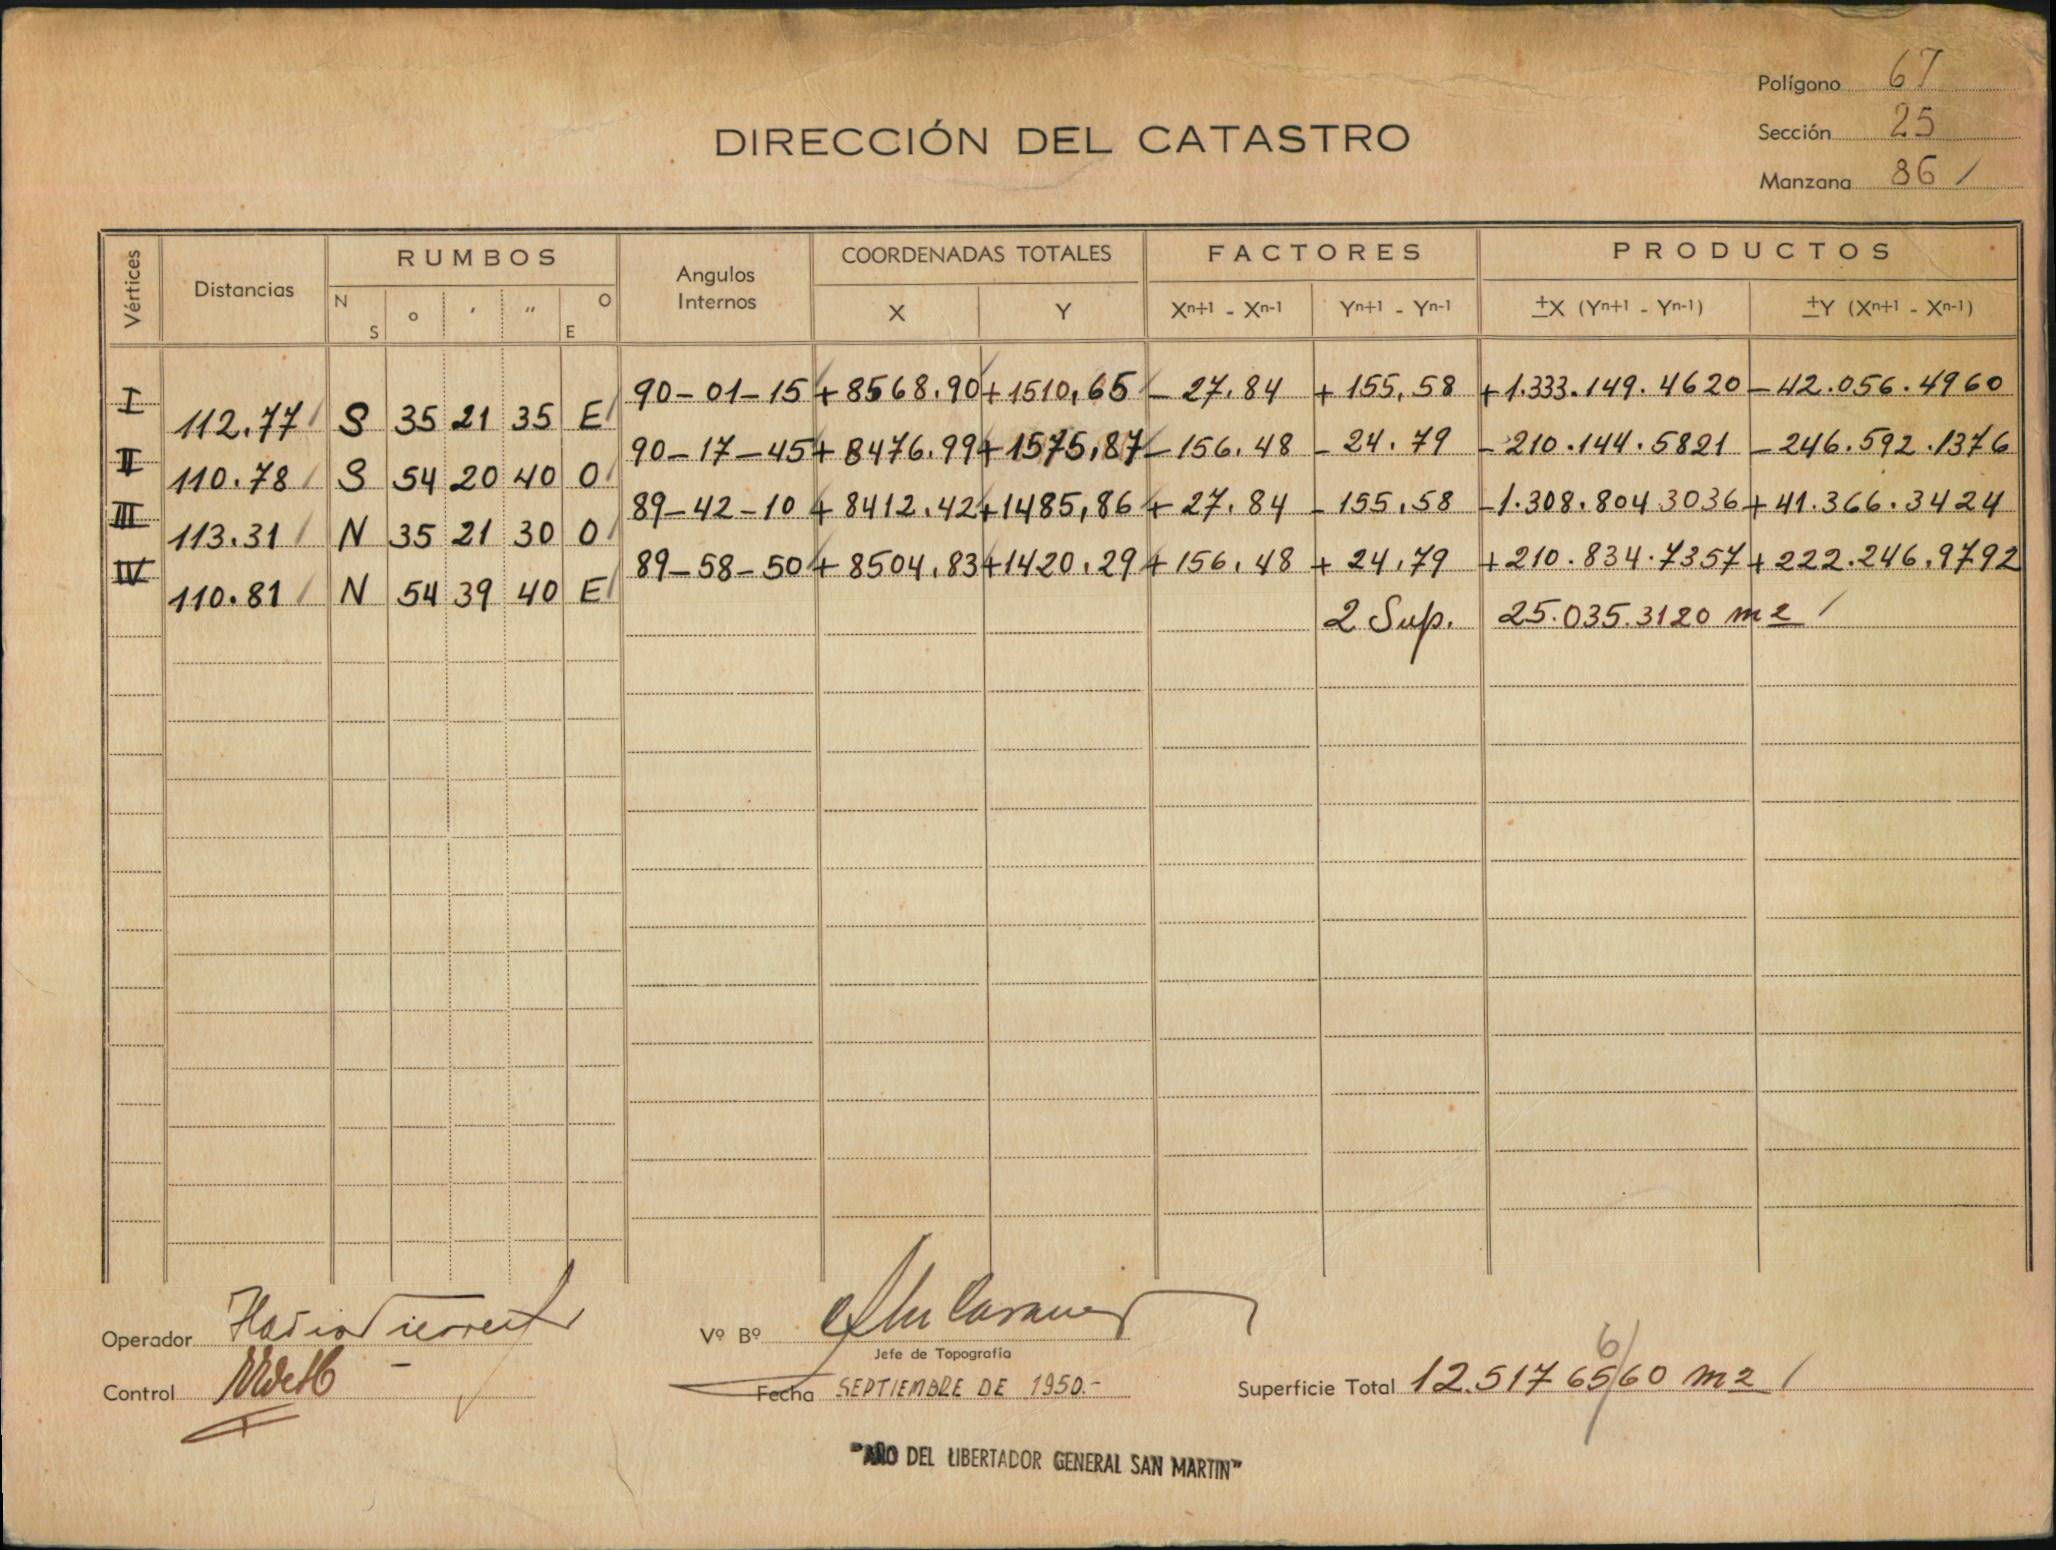 Polígono 67
Sección 25
Manzana 86 /
DIRECCIÓN DEL CATASTRO
Vértices Distancias RUMBOS Angulos Internos COORDENADAS TOTALES FACTORES PRODUCTOS
N S ° ′ ″ O E X Y Xn+1 - Xn-1 Yn+1 - Yn-1 ±X (Yn+1 - Yn-1) ±Y (Xn+1 - Xn-1)
I 90-01-15 +8568.90 +1510,65 -27.84 +155,58 +1.333.149.4620 -42.056.4960
112.77 S 35 21 35 E
II 90-17-45 +8476.99 +1575,87 -156.48 -24.79 -210.144.5821 -246.592.1376
110.78 S 54 20 40 O
III 89-42-10 +8412.42 +1485,86 +27.84 -155.58 -1.308.804 3036 +41.366.3424
113.31 N 35 21 30 O
IV 89-58-50 +8504.83 +1420.29 +156.48 +24.79 +210.834.7357 +222.246.9792
110.81 N 54 39 40 E
2 Sup. 25.035.3120 m2 /
Operador
Vº Bº
Jefe de Topografía
Control
Fecha SEPTIEMBRE DE 1950.-
Superficie Total 12.517 6560 m2 /
6
"AÑO DEL LIBERTADOR GENERAL SAN MARTIN"